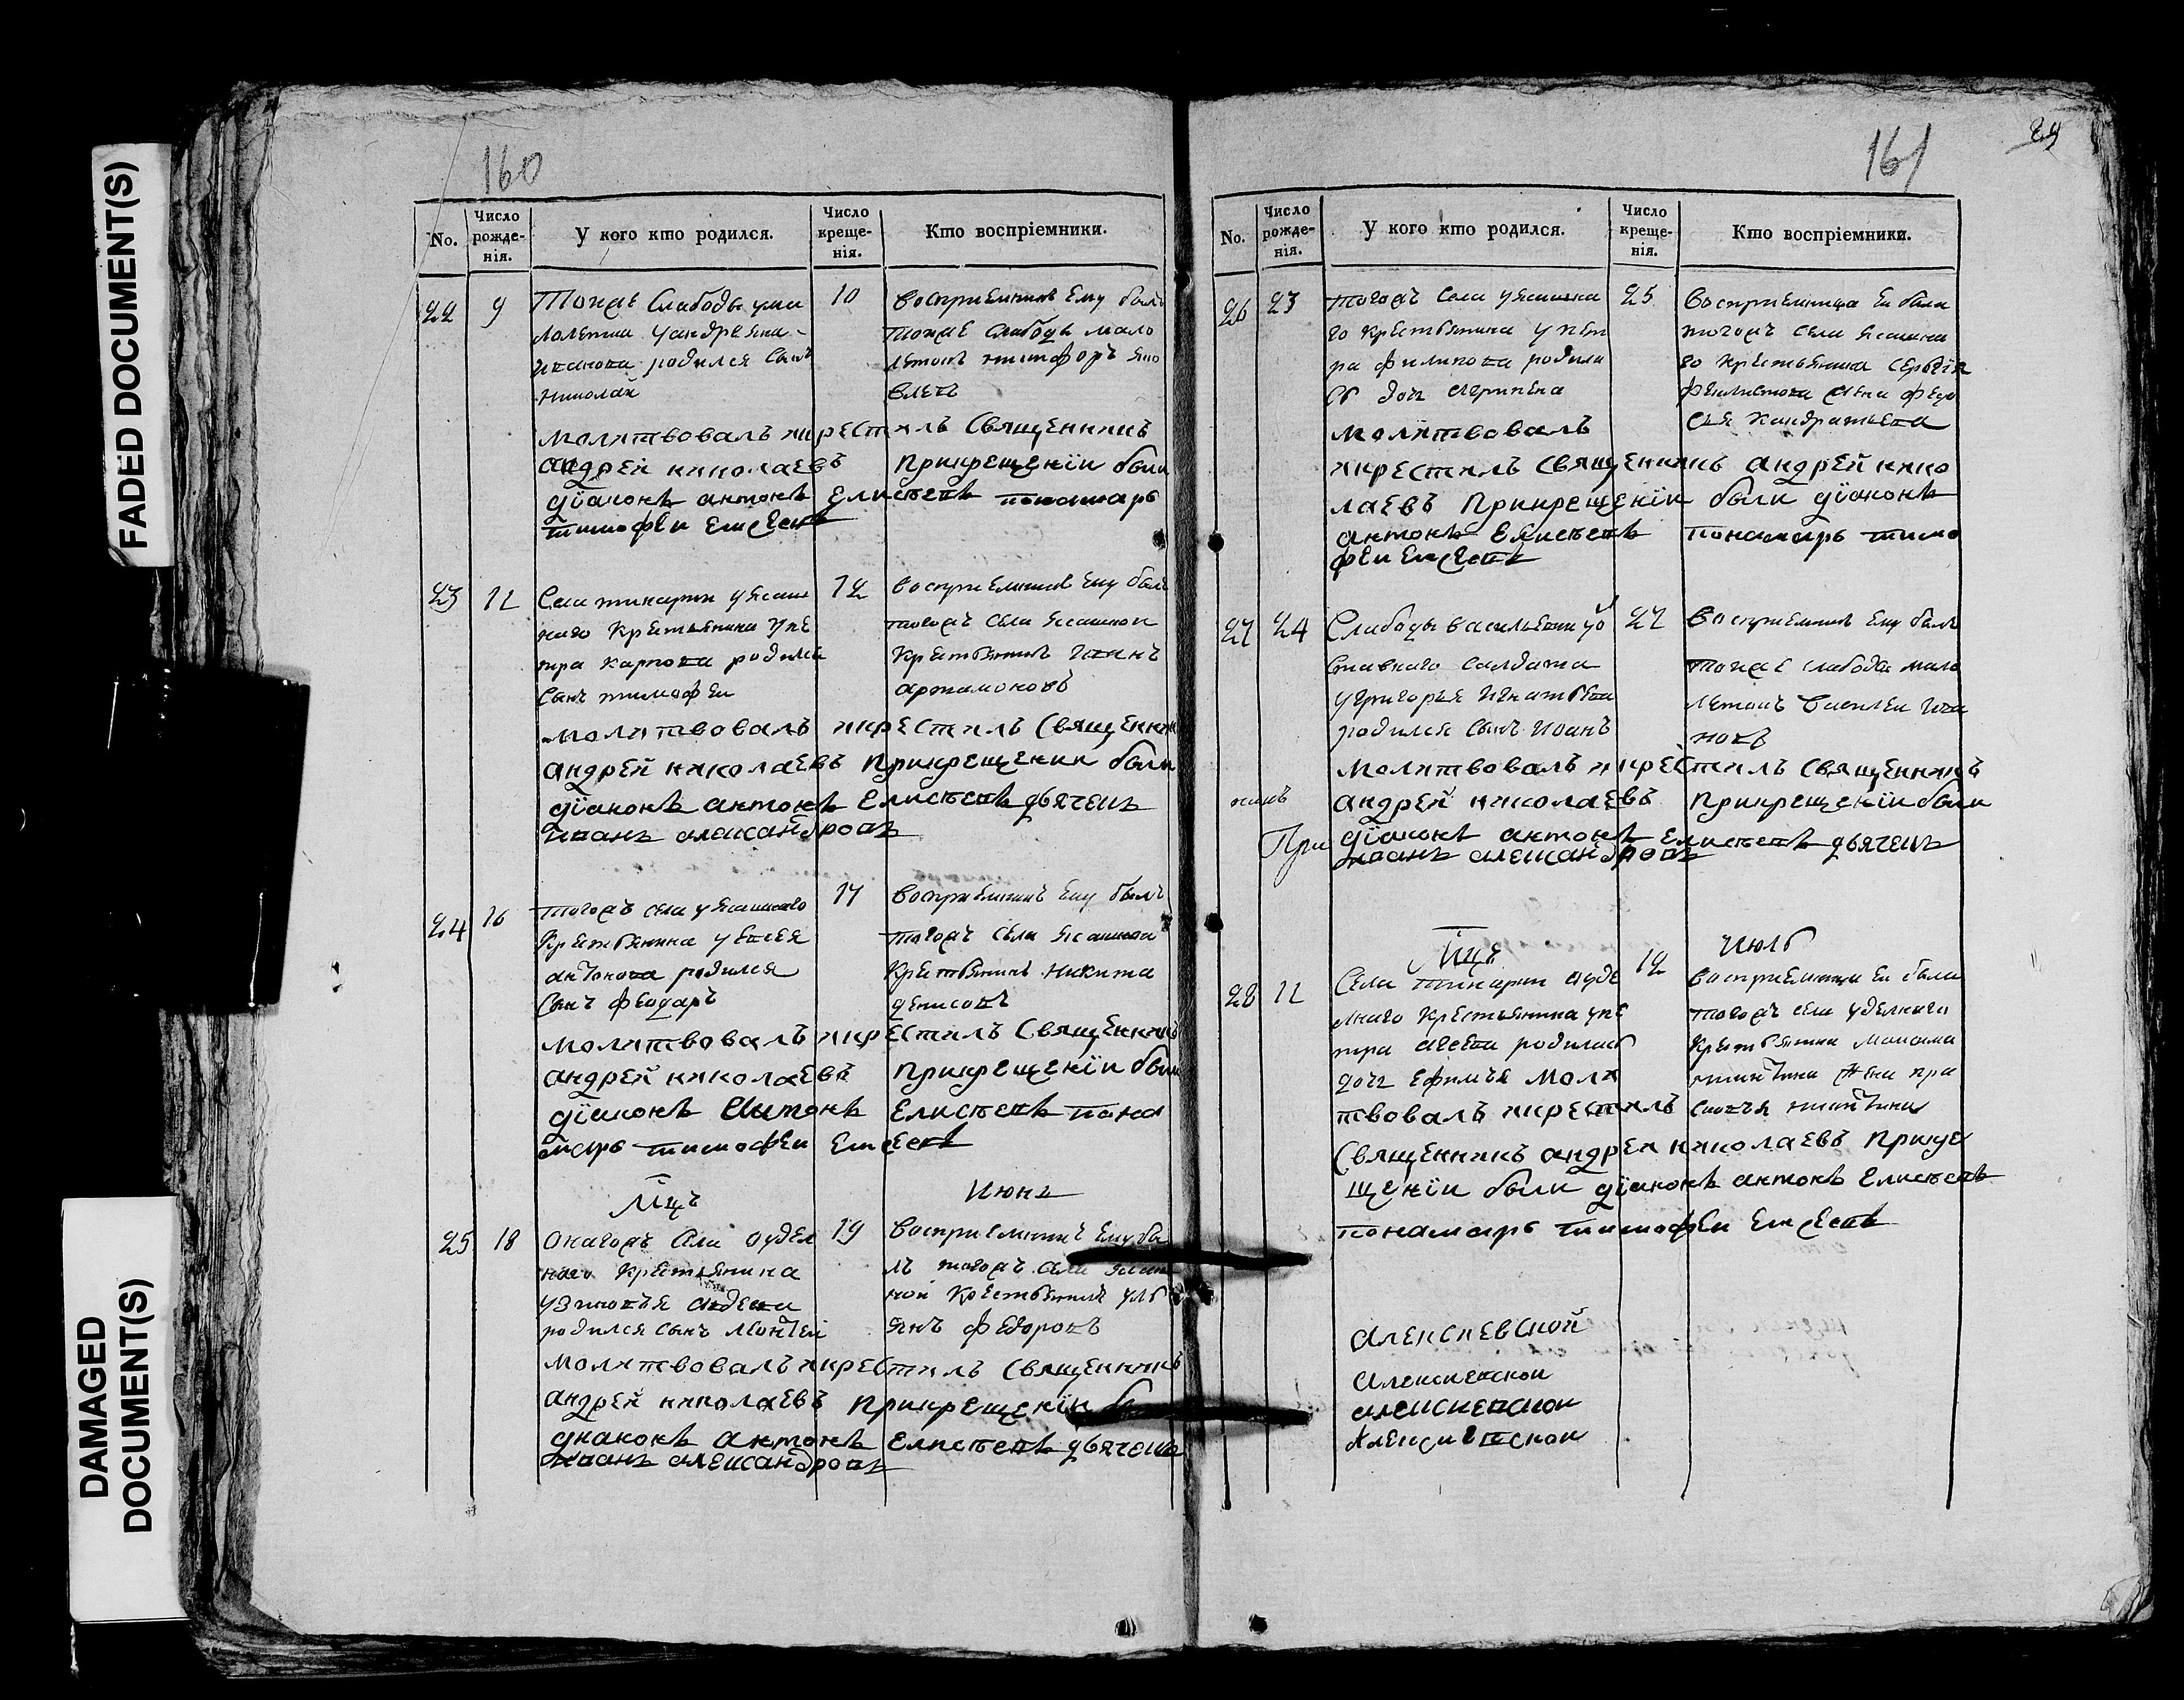 FADED DOCUMENT(S)
DAMAGED
DOCUMENT(S)
160
No.
Число рожденія.
У кого кто родился.
Число крещенія.
Кто воспріемники.
22 9 Тояже Слабоды ума
лолетна Уандреяна
иванова родился Сынъ
николай
10 восприемникъ Ему былъ
тояже слабоды мало
летокъ никифоръ яко
влевъ
молитвовалъ икрестилъ Священникъ
андрей николаевъ прикрещенїи были
дїаконъ антонъ Елисеевъ понамарь
тимофеи
23 11 Села тинарки уясаш
наго Крестьянина упе
тра карпова родился
Сынъ тимофеи
12 восприемникъ Ему былъ
тогожъ села ясашнои
Крестьянинъ Иванъ
артамоновъ
молитвовалъ икрестилъ Священни
андрей николаевъ прикрещении были
дїаконъ антонъ Елисеевъ дьячекъ
иванъ александровъ
24 16 тогожъ села уясашнаго
Крестьянина уевсея
антонова родился
Сынъ феодаръ
17 восприемникъ Ему былъ
тогожъ села ясашнои
Крестьянинъ никита
денисовъ
молитвовалъ икрестилъ Священникъ
андрей николаевъ прикрещенїи были
дїаконъ Антонъ Елисеевъ пона
марь тимофеи
Мцъ Июнъ
25 18 Онагожъ села оудел
наго Крестьянина
узиновья авдеева
родился сынъ леонтеи
19 восприемникъ Ему бы
лъ тогожъ села ясаш
нои Крестьянинъ уль
янъ федоровъ
молитвовалъ икрестилъ Священникъ
андрей николаевъ прикрещенїи
диаконъ антонъ Елисеевъ дьячекъ
иванъ александровъ
161
No.
Число рожденія.
У кого кто родился.
Число крещенія.
Кто воспріемники.
26 23 тогожъ села уясашна
го крестьянина упет
ра филипова родила
сь дочь Агрипена
25 восприемница Еи была
тогожъ села ясашна
го крестьянина Сергѣя
жена федо
сья Кандратьева
молитвовалъ
икрестилъ Священникъ андрей нико
лаевъ прикрещенїи были дїаконъ
антонъ Елисеевъ понамарь тимо
феи
27 24 Слабоды васильевки уо
ставнаго салдата
угригорья игнатьева
родился сынъ Иоанъ
27 восприемникъ Ему былъ
тояже слабоды мало
летокъ Василеи Ива
новъ
молитвовалъ икрестилъ Священникъ
никъ андрей николаевъ прикрещенїи были
При дїаконъ антонъ Елисеевъ дьячекъ
иванъ александровъ
Мцъ Июль
28 11 Села тинарки оуде
лнаго Крестьянина упе
тра авсева родилась
дочь Ефимъя моли
12 восприемница Еи была
тогожъ села уделнаго
Крестьянина Максима
никитина жена пра
сковья никитина
твовалъ икрестилъ
Священникъ андреи николаевъ прикре
щенїи были дїаконъ антонъ Елисеевъ
понамарь тимофеи
Алексиевской
Алексиевскои
алексиевскои
Алексиевскои